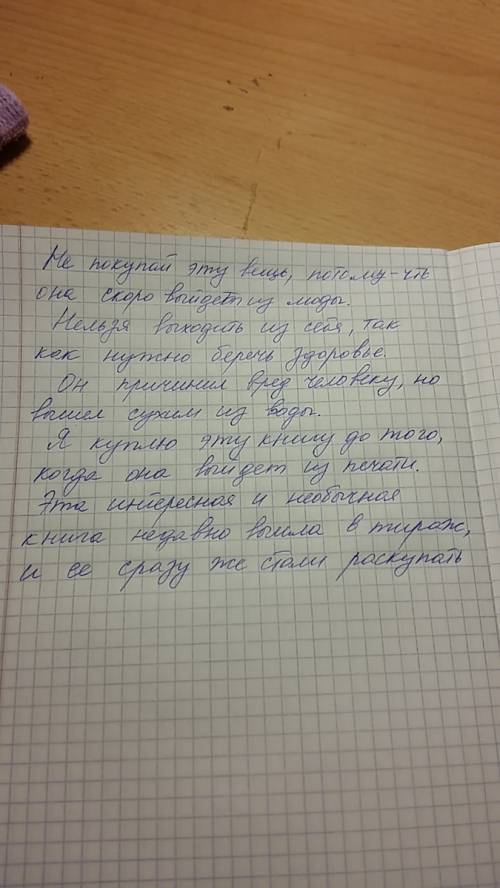 Не покупай эту вещь, потому-чть
она скоро выйдет из моды.
Нельзя выходить из себя, так
как нужно беречь здоровье.
Он причинил вред человеку, но
вышел сухим из воды.
Я куплю эту книгу до того,
когда она выйдет из печати.
Эта интересная и необычная
книга недавно вышла в тираж,
и ее сразу же стали раскупать